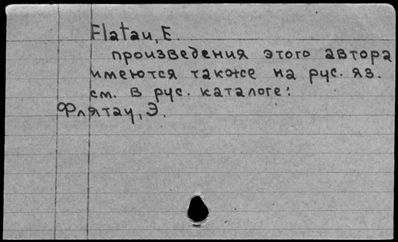 Flatau, E.
произведения этого автора
имеются также на рус. яз.
см. в рус. каталоге:
Флятау, Э.